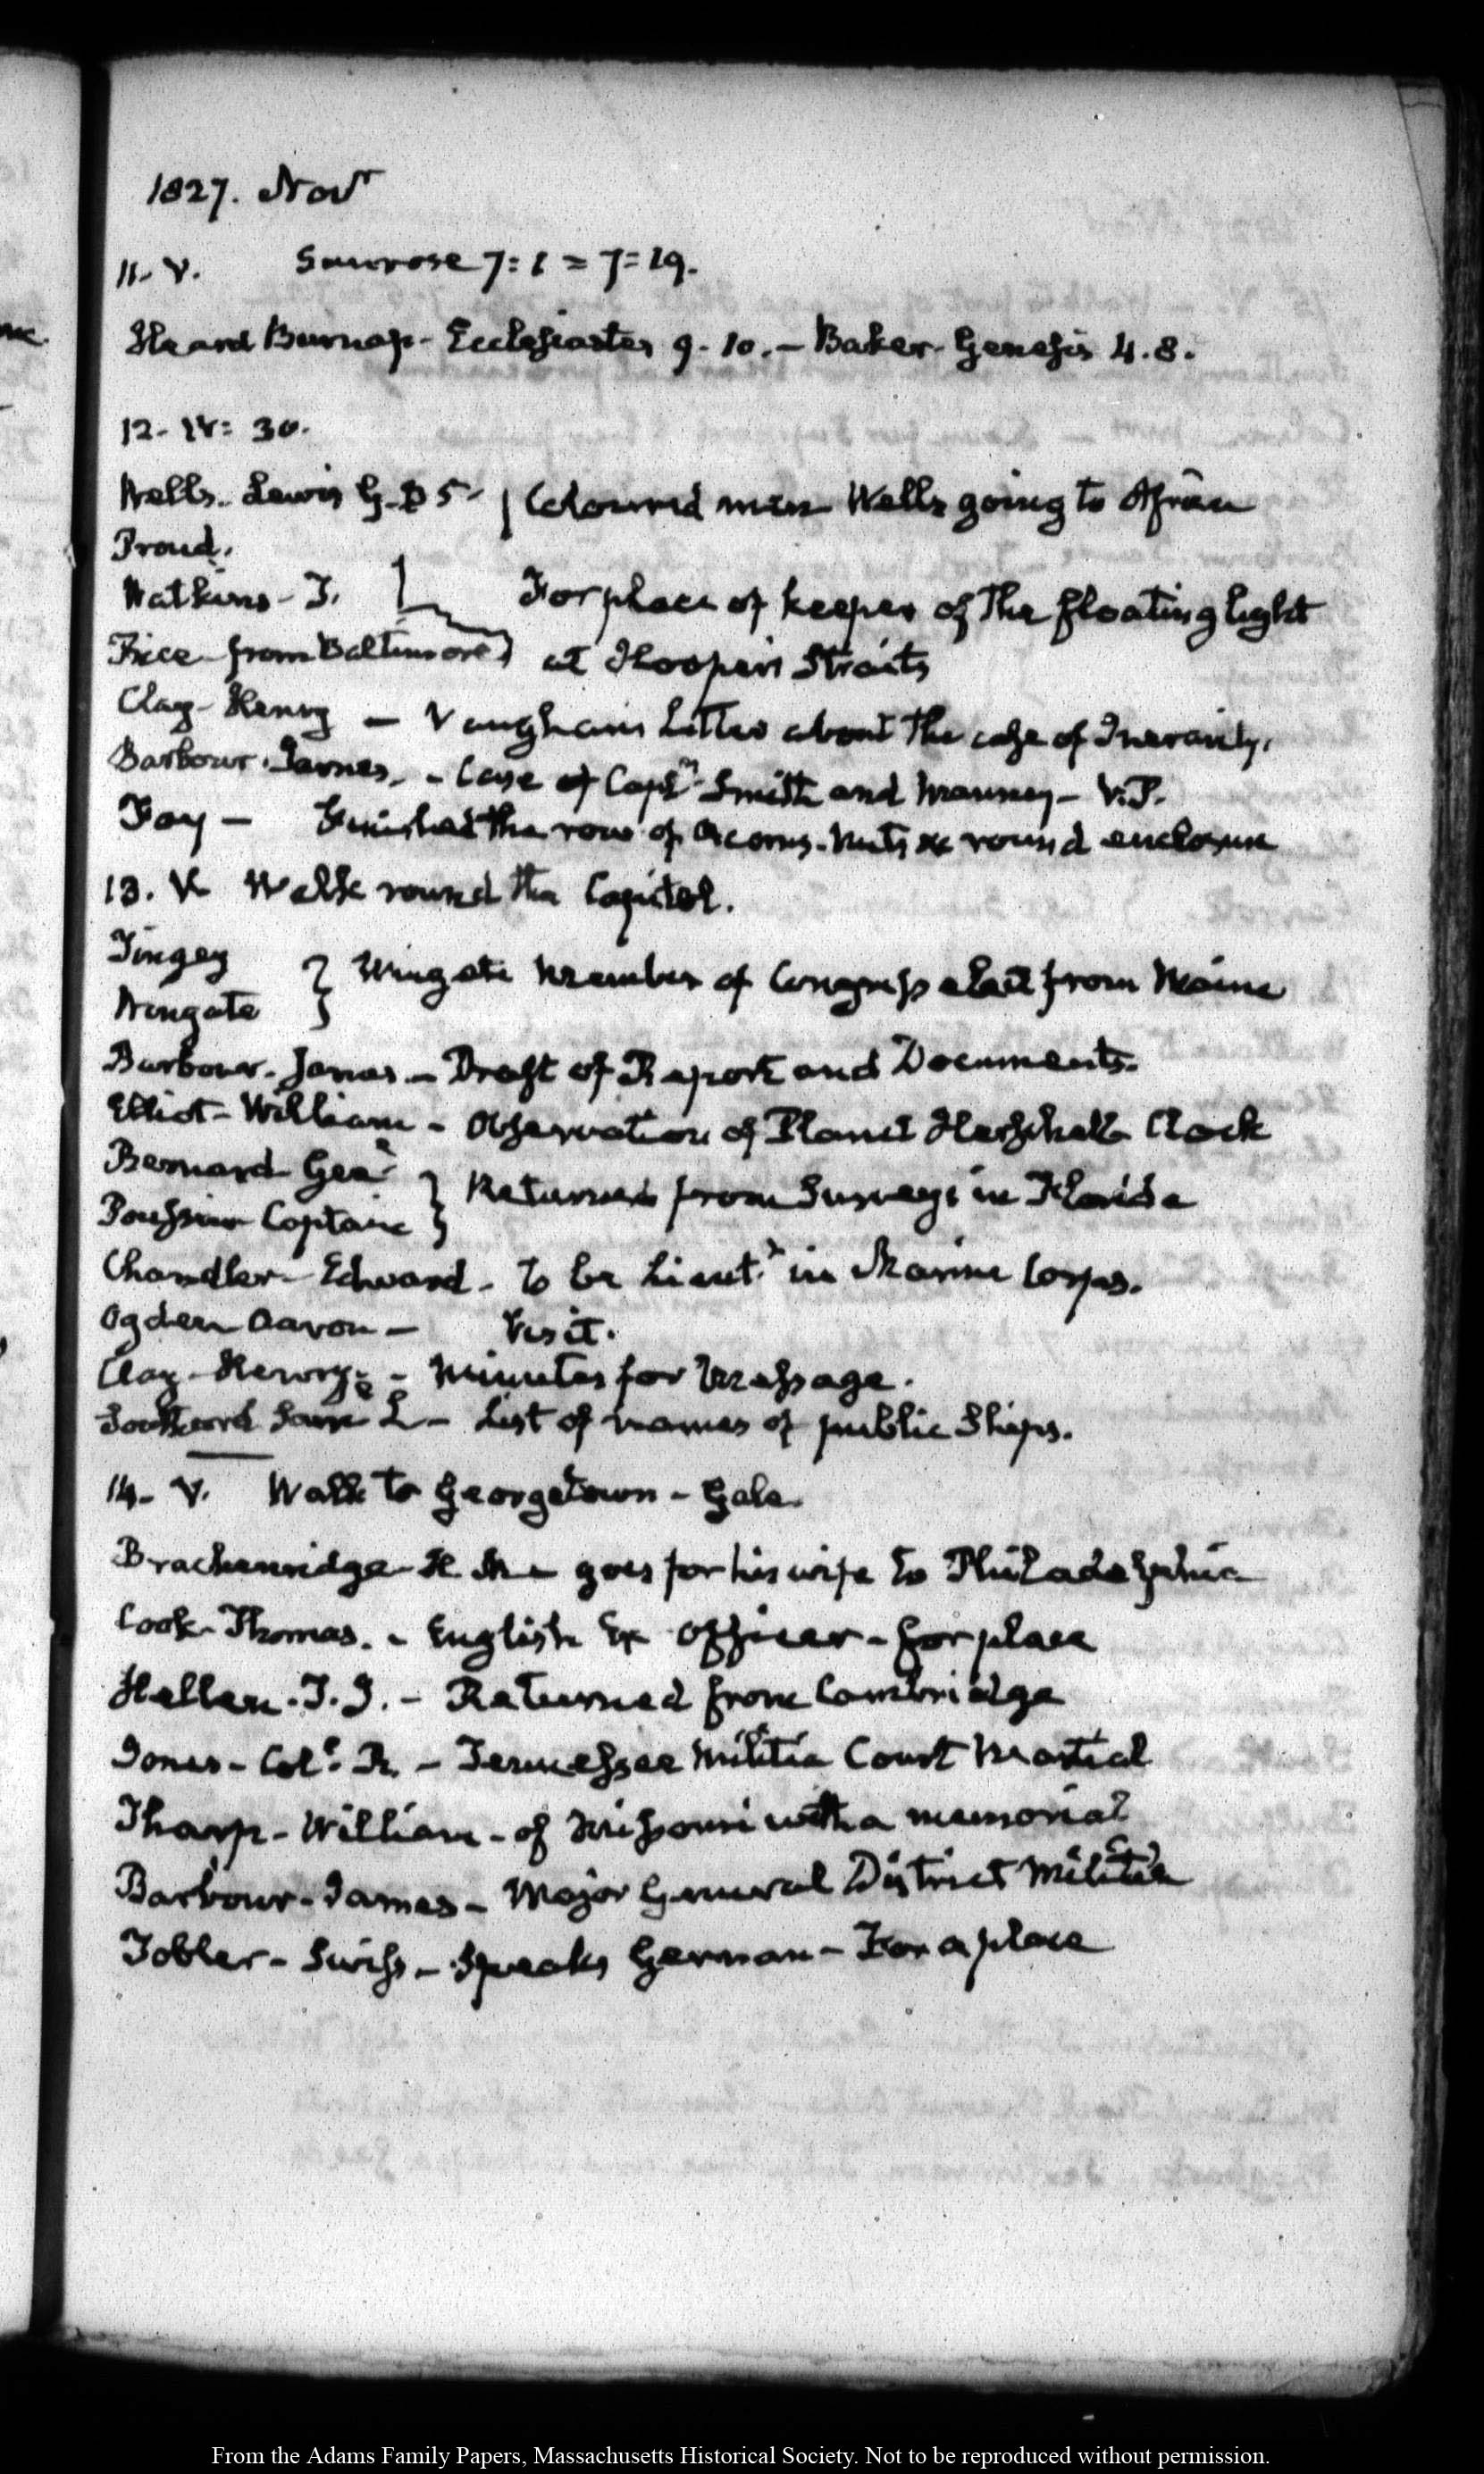 1827. Novr
11. V. Sun rose 7: 1 = 7=19.
Heard Burnap- Ecclesiastes 9. 10. — Baker- Genesis 4. 8.
12- IV: 30.
Wells. Lewis G. D 5 Coloured men Wells going to Africa
Proud.
Watkins- T. For place of keeper of the floating light
Price from Baltimore at Hooper's Straits
Clay- Henry — Vaughan's Letter about the case of
Barbour. James. - Case of Captn Smith and — V.P.
Fay — Finished the row of Acorns. Nuts &c round enclosure
13. V. Walk round the Capitol.
Tingey
Wingate } Wingate Member of Congress elect from Maine
Barbour. James — Draft of Report and Documents.
Elliot- William - Observation of Planet Herschell Clock
Bernard Genl
Poussin Captain } Returned from Surveys in Florida
Chandler- Edward. to be Lieutt in Marine Corps.
Ogden Aaron — Visit.
Clay- Henry. - Minutes for Message.
Southard Saml L — List of names of public Ships.
14. V. Walk to Georgetown - Gale.
Brackenridge- H. M - goes for his wife to Philadelphia
Cook- Thomas. - English Ex Officer - for place
Hellen. T. J. — Returned from Cambridge
Jones - Coll. R. — Tennessee Militia Court Martial
Tharp - William - of Missouri with a memorial
Barbour - James - Major General District Militia
Tobler - Swiss - Speaks German - For a place
From the Adams Family Papers, Massachusetts Historical Society. Not to be reproduced without permission.